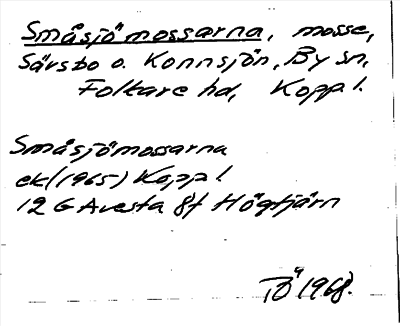 Småsjömossarna, mosse,
Särsbo o. Konnsjön, By sn,
Folkare hd, Koppl.
Småsjömossarna
ek (1965) Koppl
12 G Avesta 8f Högtjärn
TÖ 1968.